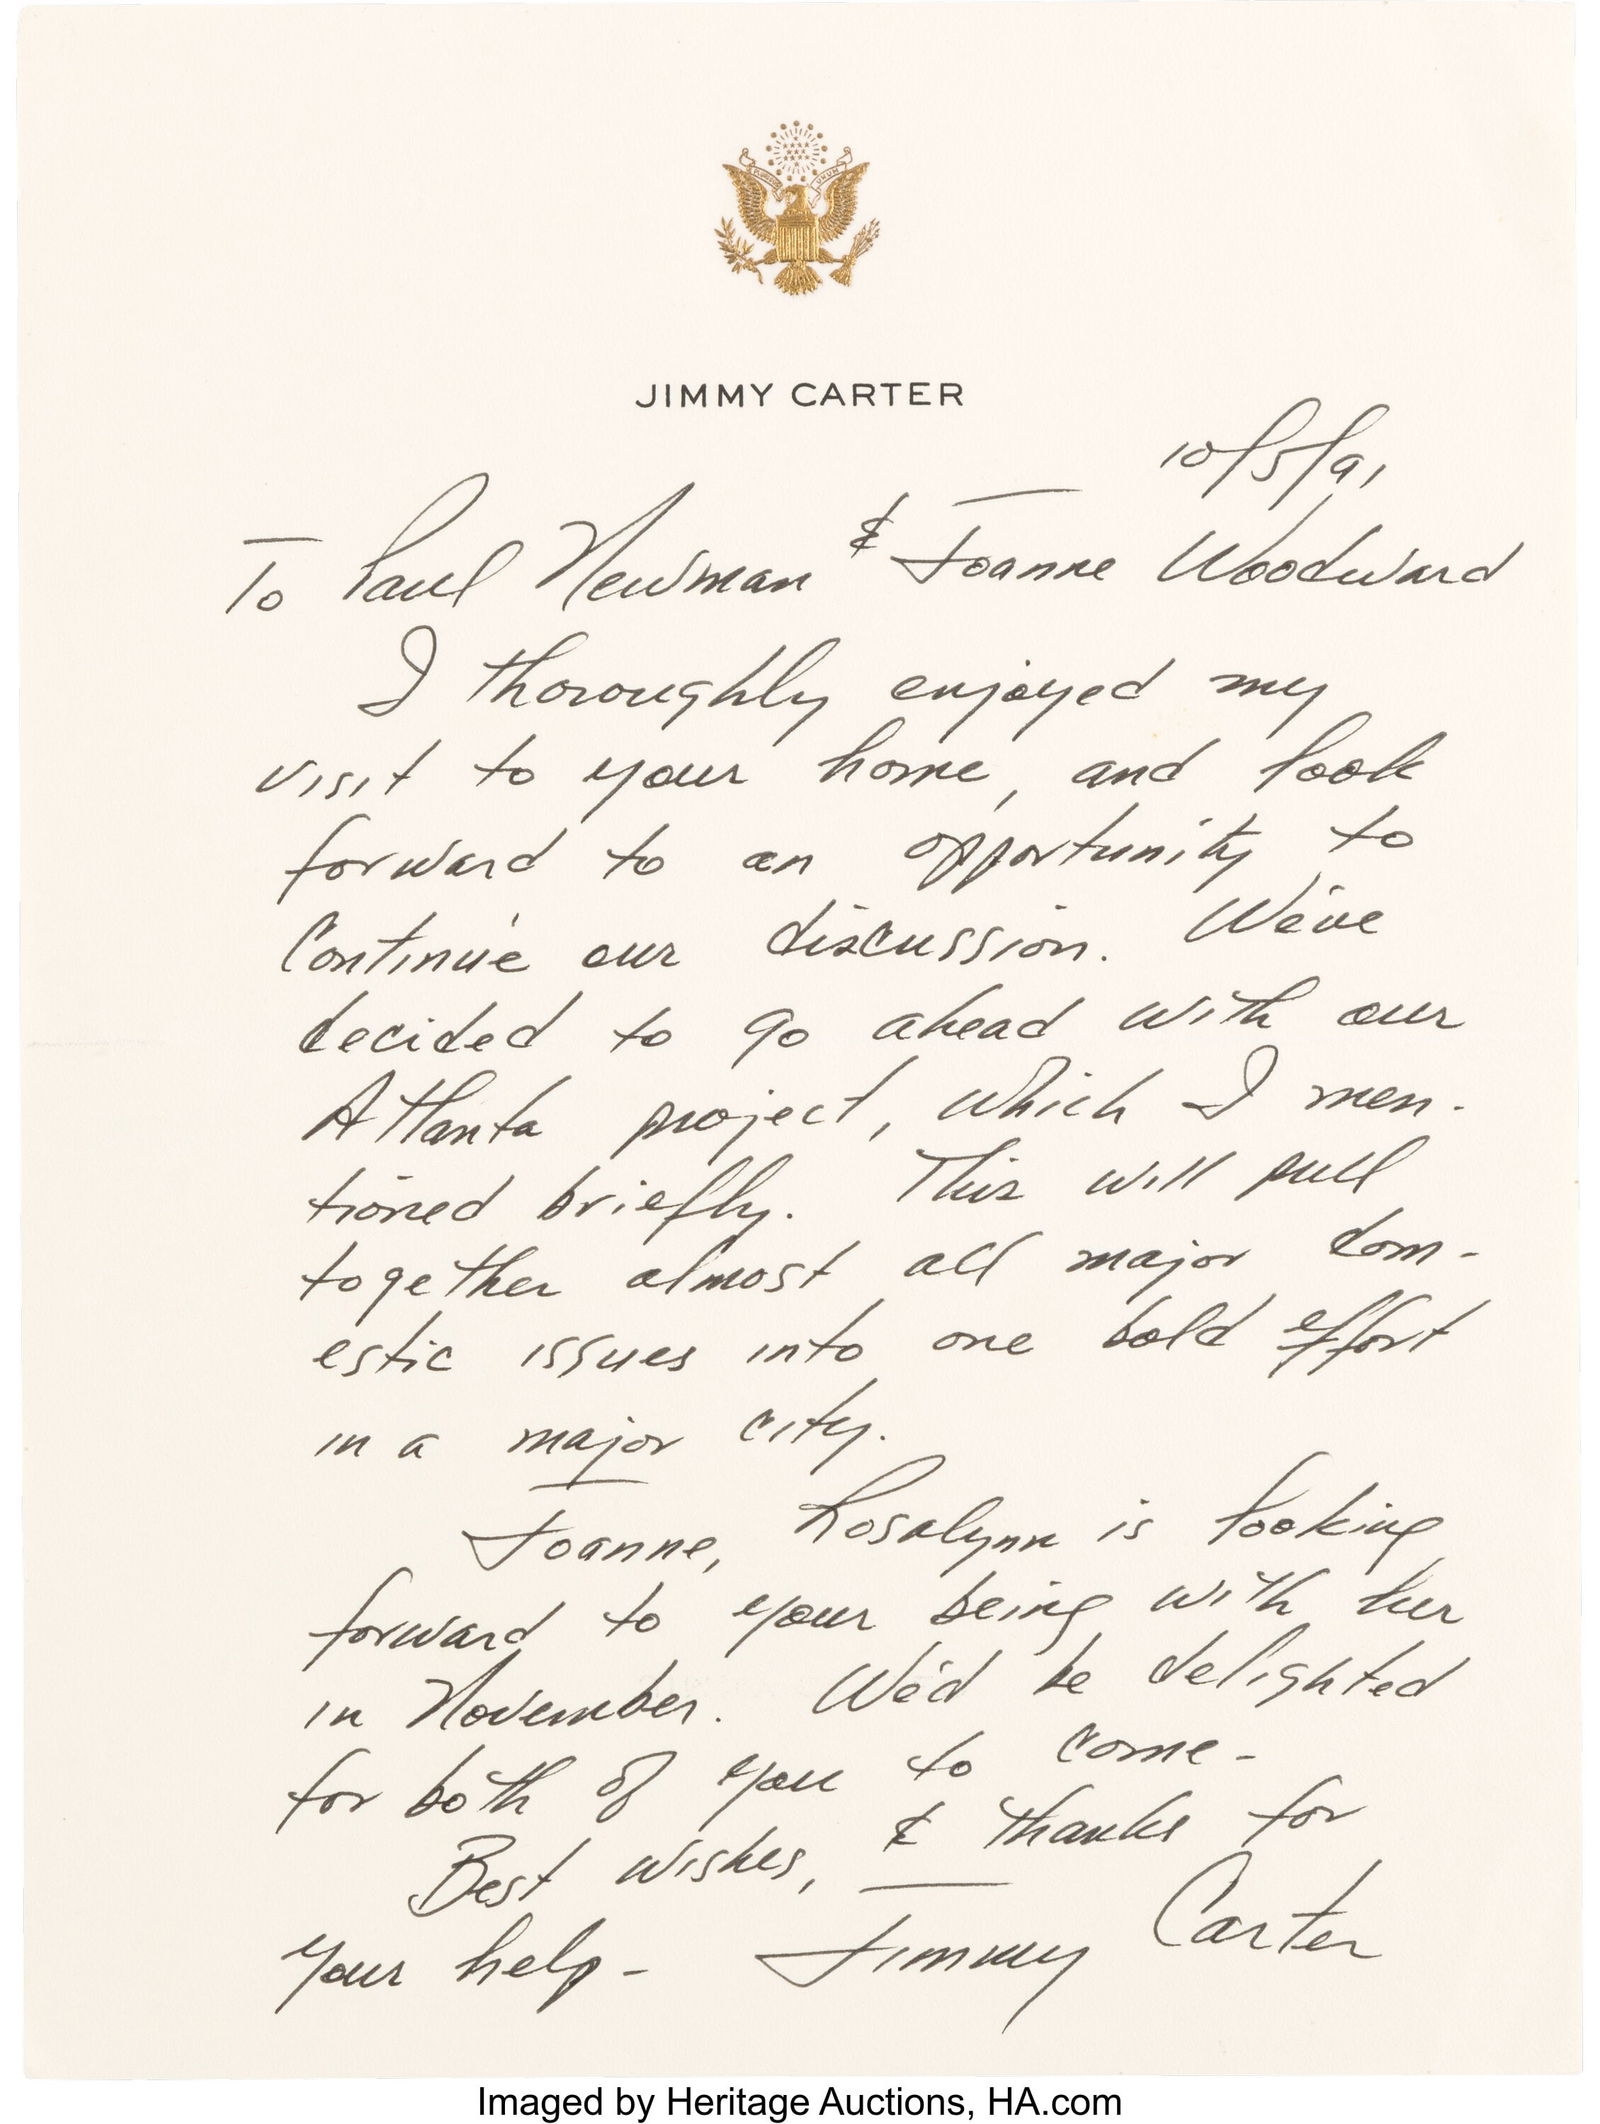 E PLURIBUS UNUM
JIMMY CARTER
10/5/91
To Paul Newman & Joanne Woodward
I thoroughly enjoyed my
visit to your home, and look
forward to an opportunity to
continue our discussion. We've
decided to go ahead with our
Atlanta project, which I men-
tioned briefly. This will pull
together almost all major dom-
estic issues into one bold effort
in a major city.
Joanne, Rosalynn is looking
forward to your being with her
in November. We'd be delighted
for both of you to come-
Best wishes, & thanks for
your help- Jimmy Carter
Imaged by Heritage Auctions, HA.com